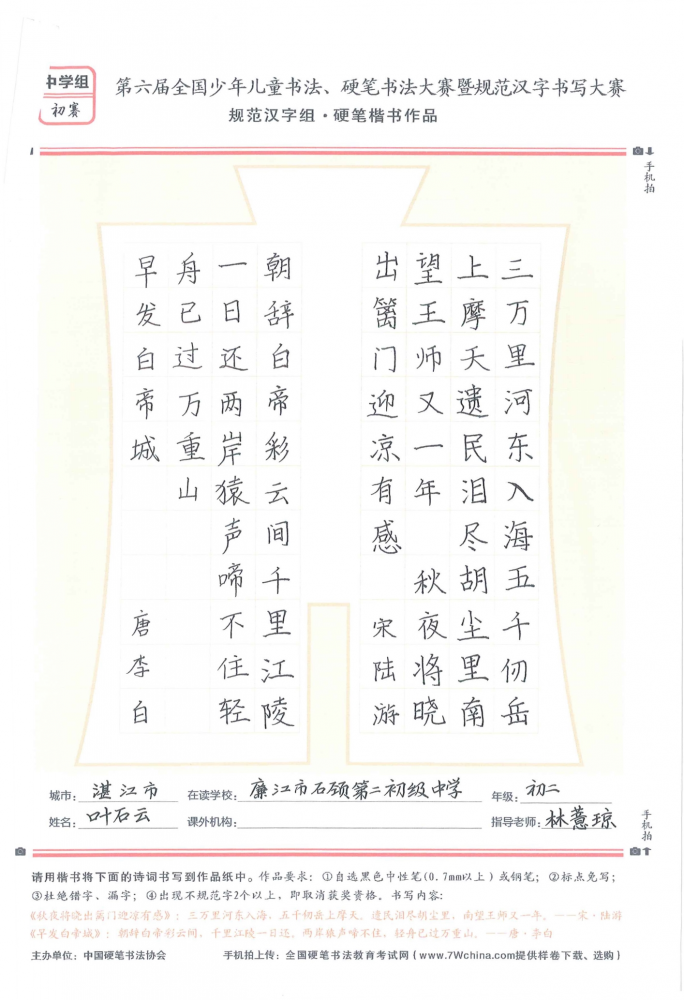 中学组
初赛
第六届全国少年儿童书法、硬笔书法大赛暨规范汉字书写大赛
规范汉字组·硬笔楷书作品
手机拍
三万里河东入海五千仞岳
上摩天遗民泪尽胡尘里南
望王师又一年 秋夜将晓
出篱门迎凉有感 宋陆游
朝辞白帝彩云间千里江陵
一日还两岸猿声啼不住轻
舟已过万重山
早发白帝城 唐李白
城市：湛江市 在读学校：廉江市石颈第二初级中学 年级：初二
姓名：叶石云 课外机构： 指导老师：林薏琼
手机拍
请用楷书将下面的诗词书写到作品纸中。作品要求：①自选黑色中性笔(0.7mm以上)或钢笔；②标点免写；
③杜绝错字、漏字；④出现不规范字2个以上，即取消获奖资格。书写内容：
《秋夜将晓出篱门迎凉有感》：三万里河东入海，五千仞岳上摩天。遗民泪尽胡尘里，南望王师又一年。——宋·陆游
《早发白帝城》：朝辞白帝彩云间，千里江陵一日还。两岸猿声啼不住，轻舟已过万重山。——唐·李白
主办单位：中国硬笔书法协会 手机拍上传：全国硬笔书法教育考试网{www.7Wchina.com提供样卷下载、选购}